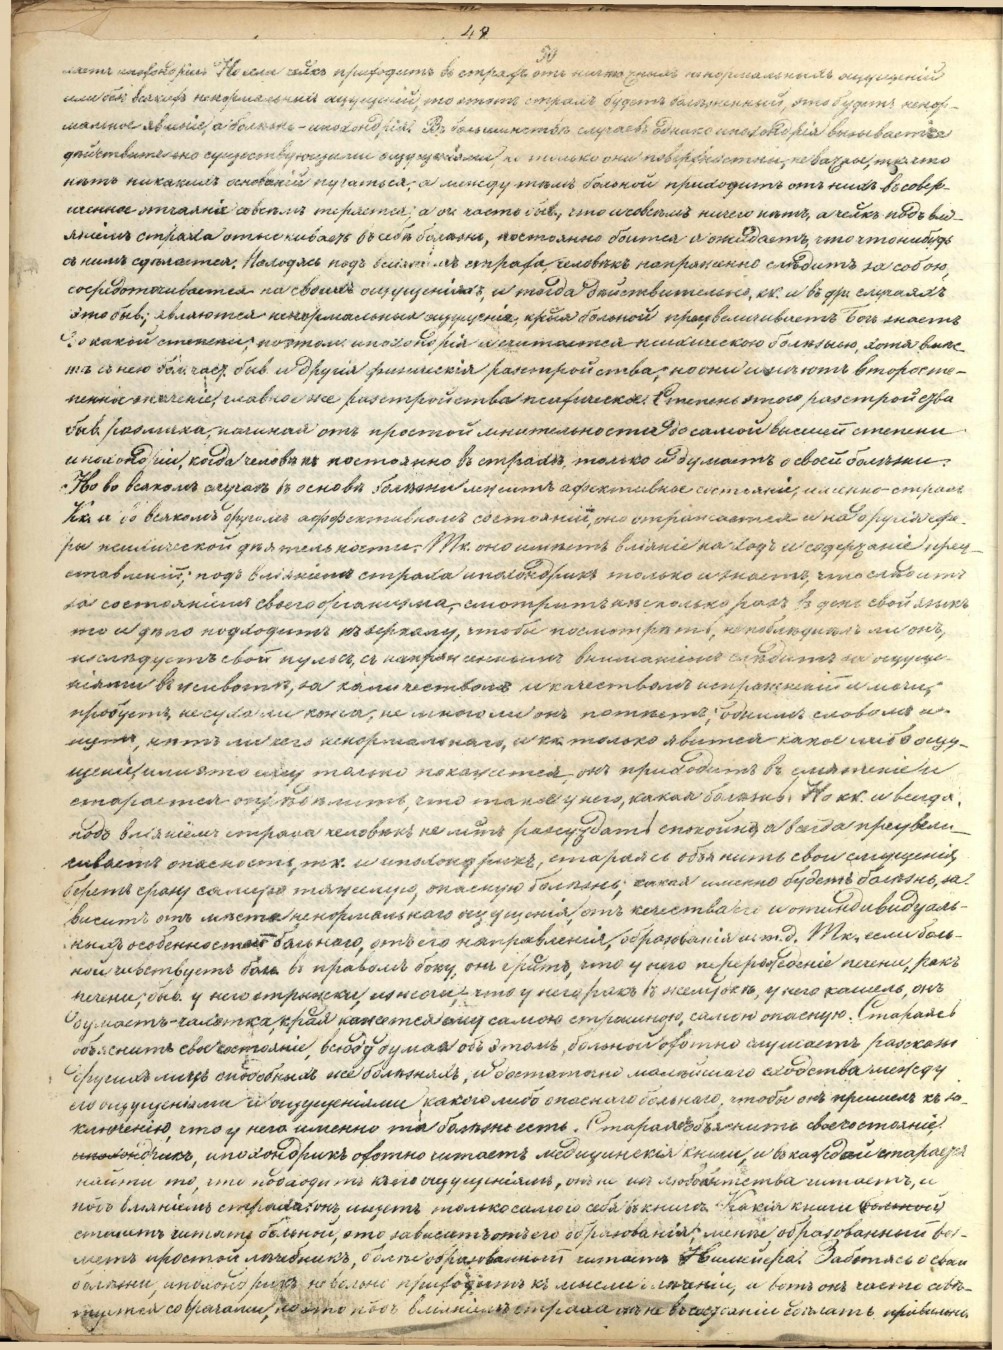 48
50
Но если человѣкъ приходитъ въ страхъ отъ ничтожныхъ ненормальныхъ ощущеній
или безъ всякихъ ненормальныхъ ощущеній, то этотъ страхъ будетъ болѣзненный, это будетъ ненор-
мальное явленіе, а болѣзнь - ипохондрія. Въ большинствѣ случаевъ однако ипохондрія вызывается
дѣйствительно существующими ощущеніями, но только они поверхностны, не важны, т. к. что
нѣтъ никакихъ основаній пугаться, а между тѣмъ больной приходитъ отъ нихъ въ совер-
шенное отчаяніе, совсѣмъ теряется; а оч. часто быв., что и совсѣмъ ничего нѣтъ, а челкъ подъ влі-
яніемъ страха отыскиваетъ въ себѣ болѣзнь, постоянно боится и ожидаетъ, что что нибудь
съ нимъ сдѣлается. Находясь подъ вліяніемъ страха, человѣкъ напряженно слѣдитъ за собою,
сосредоточивается на своихъ ощущеніяхъ, и тогда дѣйствительно, кк. и въ др. случаяхъ
это быв., являются ненормальныя ощущенія, крыя больной преувеличиваетъ Богъ знаетъ
до какой степени; поэтому ипохондрія и считается психическою болѣзнью, хотя вмѣс-
тѣ съ нею бол. част. быв. и другія физическія разстройства, но они имѣютъ второсте-
пенное значеніе, главное же разстройства психическія. Степень этого разстройства
быв. различна, начиная отъ простой мнительности до самой высшей степени
ипохондріи, когда человѣкъ постоянно въ страхѣ, только и думаетъ о своей болѣзни.
Но во всякомъ случаѣ въ основѣ болѣзни лежитъ аффективное состояніе, именно - страхъ
Кк. и во всякомъ другомъ аффективномъ состояніи, оно отражается и на другія сфе-
ры психической дѣятельности. Тк. оно имѣетъ вліяніе на ходъ и содержаніе пред-
ставленій; подъ вліяніемъ страха ипохондрикъ только и знаетъ, что слѣдитъ
за состояніемъ своего организма, смотритъ нѣсколько разъ въ день свой языкъ
то и дѣло подходитъ къ зеркалу, чтобы посмотрѣть, не поблѣднѣлъ ли онъ,
изслѣдуетъ свой пульсъ, съ напряженнымъ вниманіемъ слѣдитъ за ощуще-
ніями въ животѣ, за количествомъ и качествомъ испражненій и мочи,
пробуетъ, не суха ли кожа, не много ли онъ потѣетъ; однимъ словомъ и-
щетъ, нѣтъ ли чего ненормальнаго, и кк. только явится какое либо ощу-
щеніе, или это ему только покажется, онъ приходитъ въ смятеніе и
старается опредѣлить, что такое у него, какая болѣзнь. Но кк. и всегда
подъ вліяніемъ страха человѣкъ не м. разсуждать спокойно, а всегда преувели-
чиваетъ опасность, тк. и ипохондрикъ, стараясь объяснить свои ощущенія,
беретъ сразу самую тяжелую, опасную болѣзнь; какая именно будетъ болѣзнь, за-
виситъ отъ мѣста ненормальнаго ощущенія, отъ качества его и от индивидуаль-
ныхъ особенностей больнаго, отъ его направленія, образованія и т. д. Тк. если боль-
ной чувствуетъ боль въ правомъ боку, онъ думъ, что у него перерожденіе печени, ракъ
печени; быв. у него отрыжки, изжоги - что у него ракъ въ желудкѣ, у него кашель, онъ
думаетъ - чахотка, края кажется ему самою страшною, самою опасную. Стараясь
объяснить свое состояніе, всюду думая объ этомъ, больной охотно слушаетъ разсказы
другихъ лицъ о подобныхъ же болѣзняхъ, и достаточно малѣйшаго сходства между
его ощущеніями и ощущеніями какого либо опаснаго больнаго, чтобы онъ пришелъ къ за-
ключенію, что у него именно та болѣзнь есть. Стараясь объяснить свое состояніе,
ипохондрикъ охотно читаетъ медицинскія книги, и въ каждой старается
найти то, что подходитъ къ его ощущеніямъ, онъ не изъ любопытства читаетъ, и
подъ вліяніемъ страха онъ ищетъ только самого себя въ книгѣ. Какія книги
станетъ читать больной, это зависитъ отъ его образованія; менѣе образованный возь-
метъ простой лѣчебникъ, болѣе образованный читаетъ Нимейера. Заботясь о своей
болѣзни, ипохондрикъ невольно приходитъ къ мысли о леченіи, и вотъ онъ часто совѣ-
туется со врачами, но это подъ вліяніемъ страха онъ не въ состояніи сдѣлать правильно